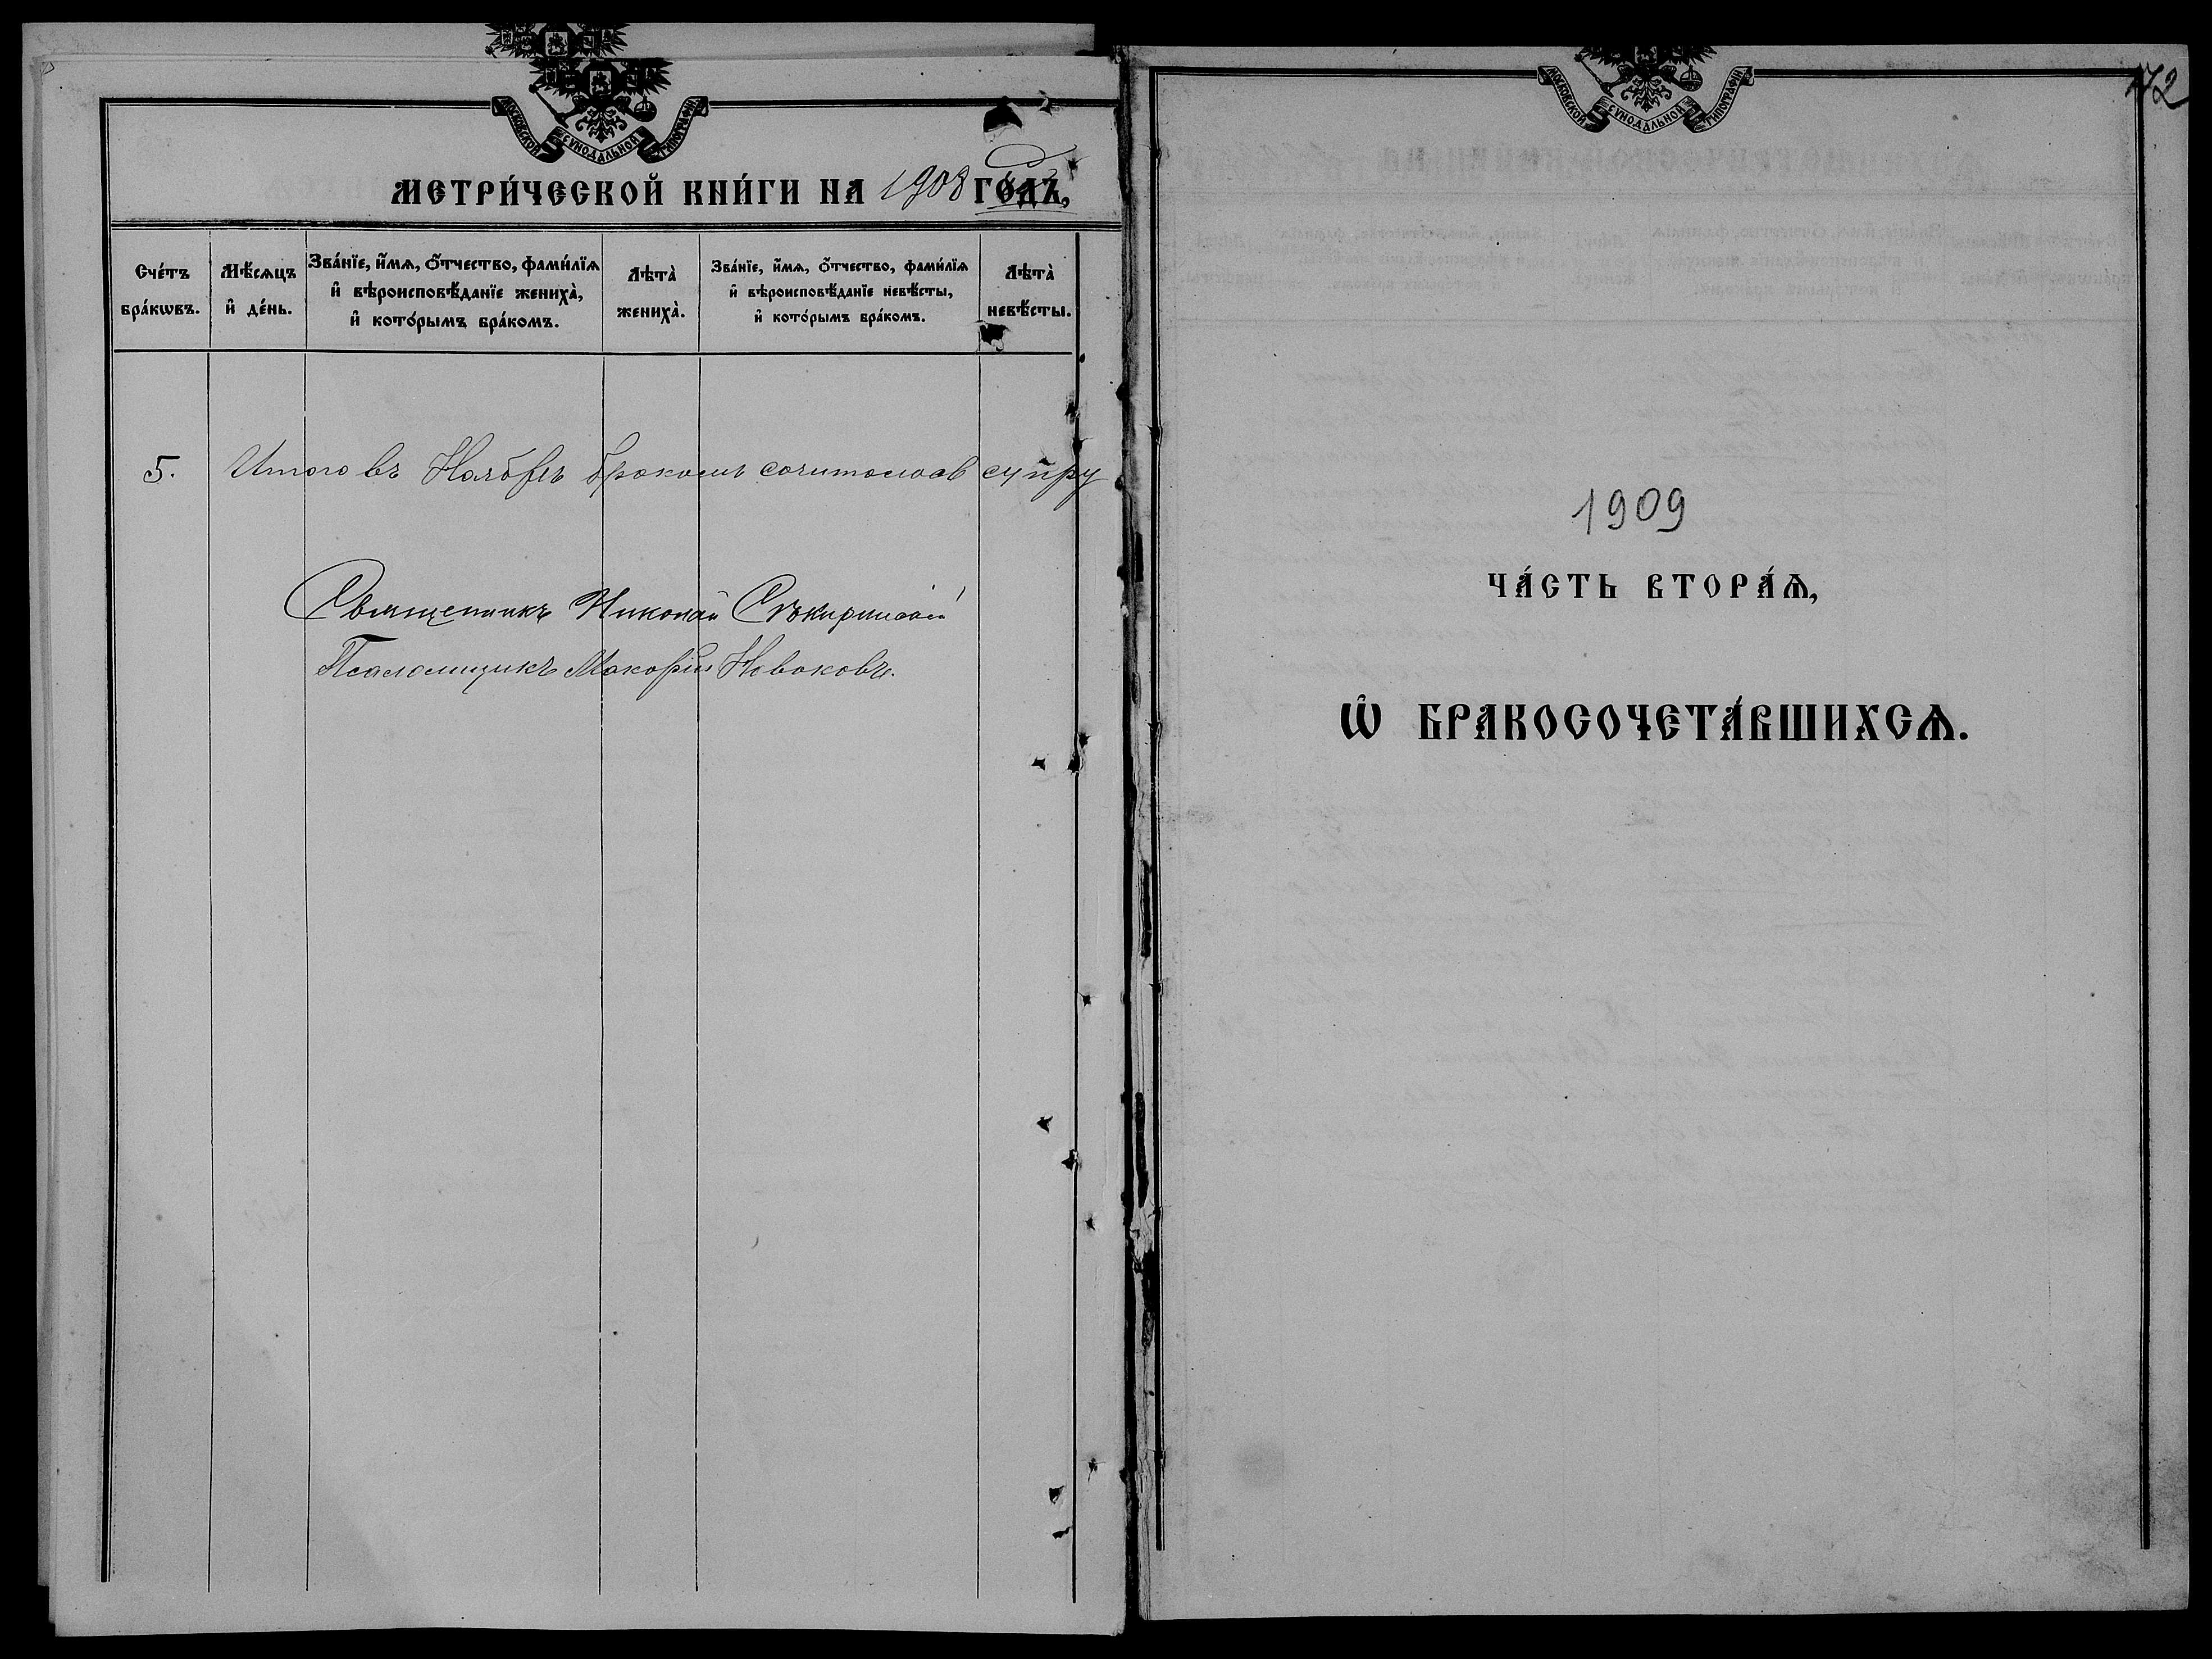 МОСКОВСКОЙ СѴНОДАЛЬНОЙ ТИПОГРАФІИ
МЕТРИ́ЧЕСКОЙ КНИ́ГИ НА 1908 ГОДЪ,
Сче́тъ бра́кѡвъ.
Мѣ́сѧцъ и҆ де́нь.
Зва́нїе, и҆́мѧ, ѻ҆́тчество, фами́лїѧ
и҆ вѣроисповѣ́данїе жениха̀,
и҆ кото́рымъ бра́комъ.
Лѣта̀ жениха̀.
Зва́нїе, и҆́мѧ, ѻ҆́тчество, фами́лїѧ
и҆ вѣроисповѣ́данїе невѣ́сты,
и҆ кото́рымъ бра́комъ.
Лѣта̀ невѣ́сты.
5. Итого въ Ноябрѣ бракомъ
Священникъ Николай Сѣкиринскій
Псаломщикъ Макорій Новаковъ.
172
МОСКОВСКОЙ СѴНОДАЛЬНОЙ ТИПОГРАФІИ
1909
ЧА́СТЬ ВТОРА́Ѧ,
Ѡ҆ БРАКОСОЧЕТА́ВШИХСѦ.